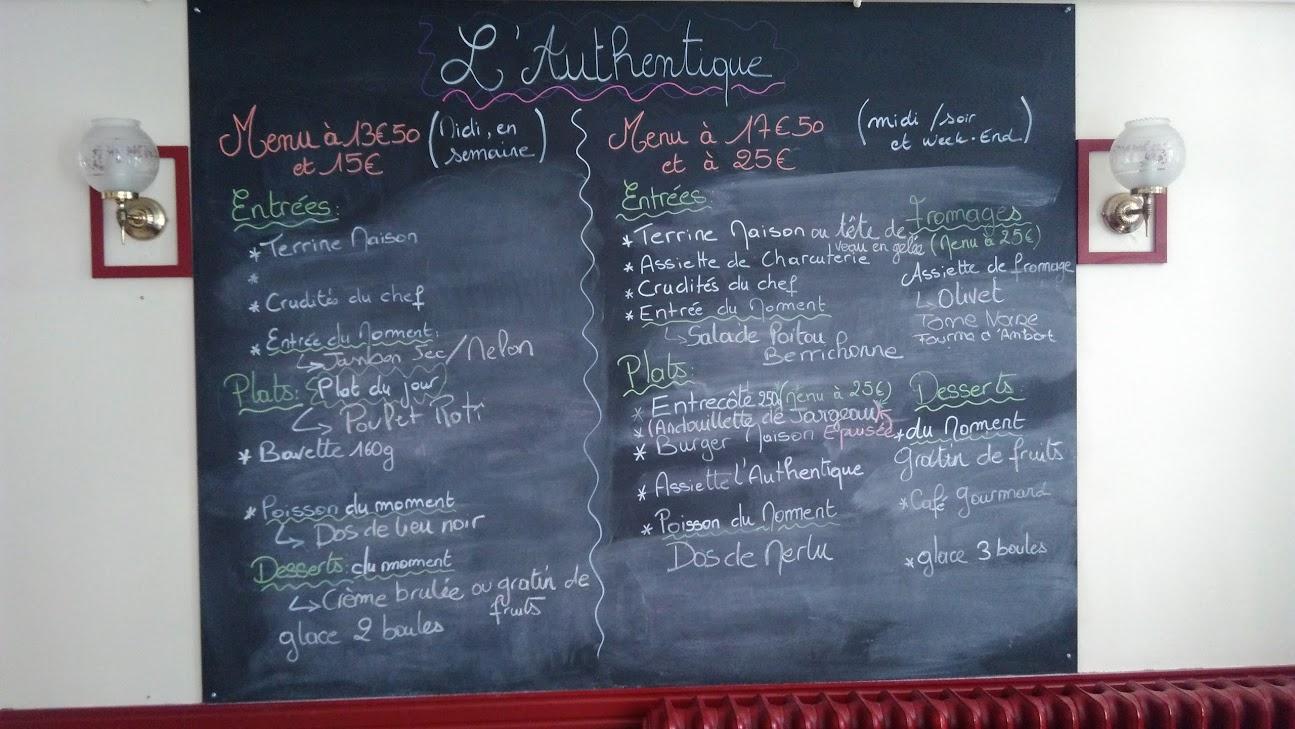 L'Authentique
Menu à 13€50
et 15€
(Midi, en
semaine)
Entrées:
* Terrine Maison
*
* Crudités du chef
* Entrée du Moment:
↳ Jambon Sec/Melon
Plats: (Plat du jour)
↳ Poulet Roti
* Bavette 160g
* Poisson du moment
↳ Dos de lieu noir
Desserts: du moment
↳ Crème brulée ou gratin de
fruits
glace 2 boules
Menu à 17€50
et à 25€
(midi /soir
et week-End)
Entrées:
* Terrine Maison ou tête de
veau en gelée
* Assiette de Charcuterie
* Crudités du chef
* Entrée du Moment
↳ Salade Poitou
Berrichonne
Plats:
* Entrecôte 250g (Menu à 25€)
* (Andouillette de Jargeau)
* Burger Maison Epuisée
* Assiette l'Authentique
* Poisson du Moment
Dos de Merlu
fromages
(Menu à 25€)
Assiette de fromage
↳ Olivet
Tome Noire
Fourme d'Ambert
Desserts:
* du Moment
Gratin de fruits
* Café gourmand
* glace 3 boules